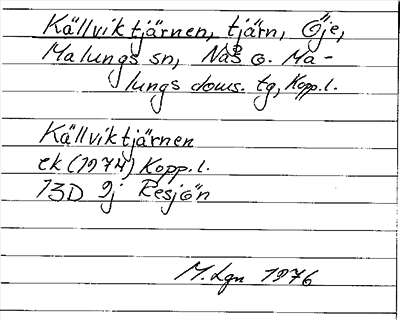 Källviktjärnen, tjärn, Öje,
Malungs sn, Nås o. Ma-
lungs doms. tg, Kopp. l.
Källviktjärnen
ek (1974) Kopp. l.
13D 9j Resjön
M. Lgn 1976